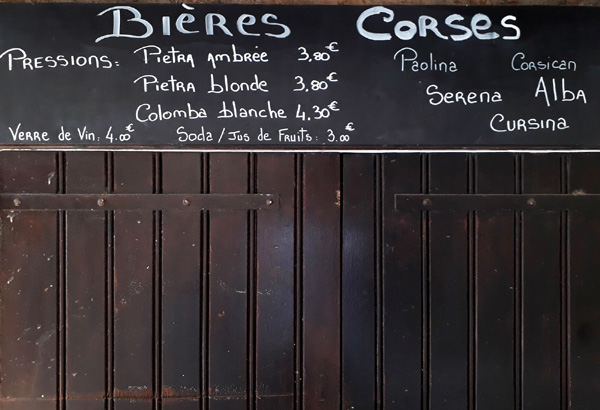 Bières Corses
Pressions: Pietra Ambrée 3,80€
Pietra blonde 3,80€
Colomba blanche 4.30€
Verre de Vin: 4.00€ Soda / Jus de Fruits: 3.00€
Paolina Corsican
Serena Alba
Cursina